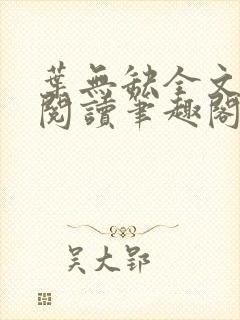 葉無缺全文
閱讀筆趣閣
吴大郢